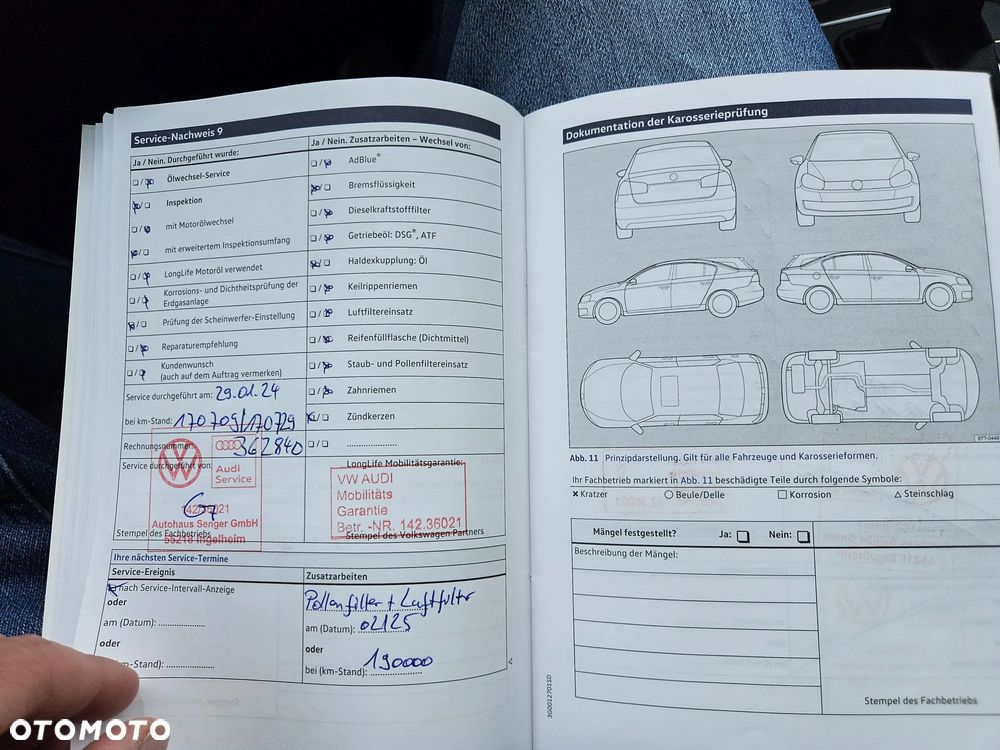 Service-Nachweis 9
Ja / Nein. Durchgeführt wurde:
Ölwechsel-Service
Inspektion
mit Motorölwechsel
mit erweitertem Inspektionsumfang
LongLife Motoröl verwendet
Korrosions- und Dichtheitsprüfung der
Erdgasanlage
Prüfung der Scheinwerfer-Einstellung
Reparaturempfehlung
Kundenwunsch
(auch auf dem Auftrag vermerken)
Service durchgeführt am: 29.01.24
bei km-Stand: 170709/170729
Rechnungsnummer: 362840
Service durchgeführt von:
Audi
Service
142.36021
Autohaus Senger GmbH
55218 Ingelheim
Stempel des Fachbetriebs
Ja / Nein. Zusatzarbeiten – Wechsel von:
AdBlue®
Bremsflüssigkeit
Dieselkraftstofffilter
Getriebeöl: DSG®, ATF
Haldexkupplung: Öl
Keilrippenriemen
Luftfiltereinsatz
Reifenfüllflasche (Dichtmittel)
Staub- und Pollenfiltereinsatz
Zahnriemen
Zündkerzen
LongLife Mobilitätsgarantie:
VW AUDI
Mobilitäts
Garantie
Betr. -NR. 142.36021
Stempel des Volkswagen Partners
Ihre nächsten Service-Termine
Service-Ereignis
nach Service-Intervall-Anzeige
oder
am (Datum):
oder
km-Stand):
Zusatzarbeiten
Pollenfilter + Luftfilter
am (Datum): 02/25
oder
bei (km-Stand): 190000
Dokumentation der Karosserieprüfung
BTT-0449
Abb. 11 Prinzipdarstellung. Gilt für alle Fahrzeuge und Karosserieformen.
Ihr Fachbetrieb markiert in Abb. 11 beschädigte Teile durch folgende Symbole:
× Kratzer ○ Beule/Delle □ Korrosion △ Steinschlag
Mängel festgestellt? Ja: □ Nein: □
Beschreibung der Mängel:
Stempel des Fachbetriebs
3G0012701SD
OTOMOTO